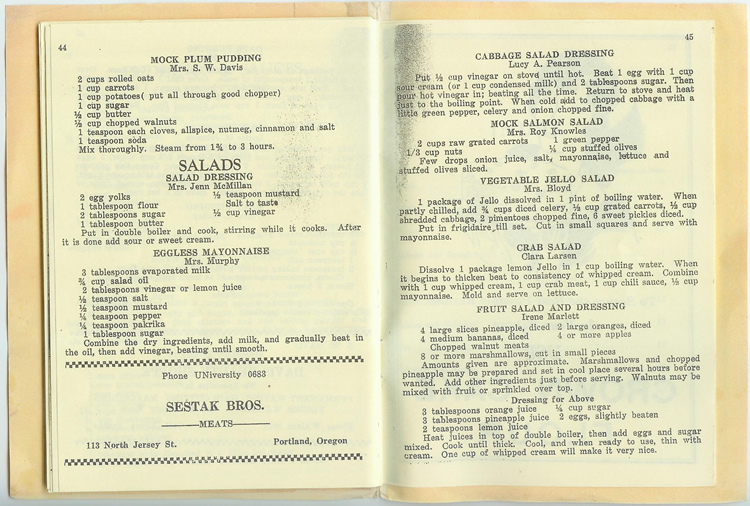 44
MOCK PLUM PUDDING
Mrs. S. W. Davis
2 cups rolled oats
1 cup carrots
1 cup potatoes( put all through good chopper)
1 cup sugar
½ cup butter
½ cup chopped walnuts
1 teaspoon each cloves, allspice, nutmeg, cinnamon and salt
1 teaspoon soda
Mix thoroughly. Steam from 1¾ to 3 hours.
SALADS
SALAD DRESSING
Mrs. Jenn McMillan
2 egg yolks ½ teaspoon mustard
1 tablespoon flour Salt to taste
2 tablespoons sugar ½ cup vinegar
1 tablespoon butter
Put in double boiler and cook, stirring while it cooks. After
it is done add sour or sweet cream.
EGGLESS MAYONNAISE
Mrs. Murphy
3 tablespoons evaporated milk
¾ cup salad oil
2 tablespoons vinegar or lemon juice
½ teaspoon salt
½ teaspoon mustard
¼ teaspoon pepper
¼ teaspoon pakrika
1 tablespoon sugar
Combine the dry ingredients, add milk, and gradually beat in
the oil, then add vinegar, beating until smooth.
Phone UNiversity 0683
SESTAK BROS.
MEATS
113 North Jersey St. Portland, Oregon
45
CABBAGE SALAD DRESSING
Lucy A. Pearson
Put ½ cup vinegar on stove until hot. Beat 1 egg with 1 cup
sour cream (or 1 cup condensed milk) and 2 tablespoons sugar. Then
pour hot vinegar in; beating all the time. Return to stove and heat
just to the boiling point. When cold add to chopped cabbage with a
little green pepper, celery and onion chopped fine.
MOCK SALMON SALAD
Mrs. Roy Knowles
2 cups raw grated carrots 1 green pepper
1/3 cup nuts ¼ cup stuffed olives
Few drops onion juice, salt, mayonnaise, lettuce and
stuffed olives sliced.
VEGETABLE JELLO SALAD
Mrs. Bloyd
1 package of Jello dissolved in 1 pint of boiling water. When
partly chilled, add ¾ cups diced celery, ½ cup grated carrots, ½ cup
shredded cabbage, 2 pimentoes chopped fine, 6 sweet pickles diced.
Put in frigidaire till set. Cut in small squares and serve with
mayonnaise.
CRAB SALAD
Clara Larsen
Dissolve 1 package lemon Jello in 1 cup boiling water. When
it begins to thicken beat to consistency of whipped cream. Combine
with 1 cup whipped cream, 1 cup crab meat, 1 cup chili sauce, ½ cup
mayonnaise. Mold and serve on lettuce.
FRUIT SALAD AND DRESSING
Irene Marlett
4 large slices pineapple, diced 2 large oranges, diced
4 medium bananas, diced 4 or more apples
Chopped walnut meats
8 or more marshmallows, cut in small pieces
Amounts given are approximate. Marshmallows and chopped
pineapple may be prepared and set in cool place several hours before
wanted. Add other ingredients just before serving. Walnuts may be
mixed with fruit or sprinkled over top.
Dressing for Above
3 tablespoons orange juice ¼ cup sugar
3 tablespoons pineapple juice 2 eggs, slightly beaten
2 teaspoons lemon juice
Heat juices in top of double boiler, then add eggs and sugar
mixed. Cook until thick. Cool, and when ready to use, thin with
cream. One cup of whipped cream will make it very nice.